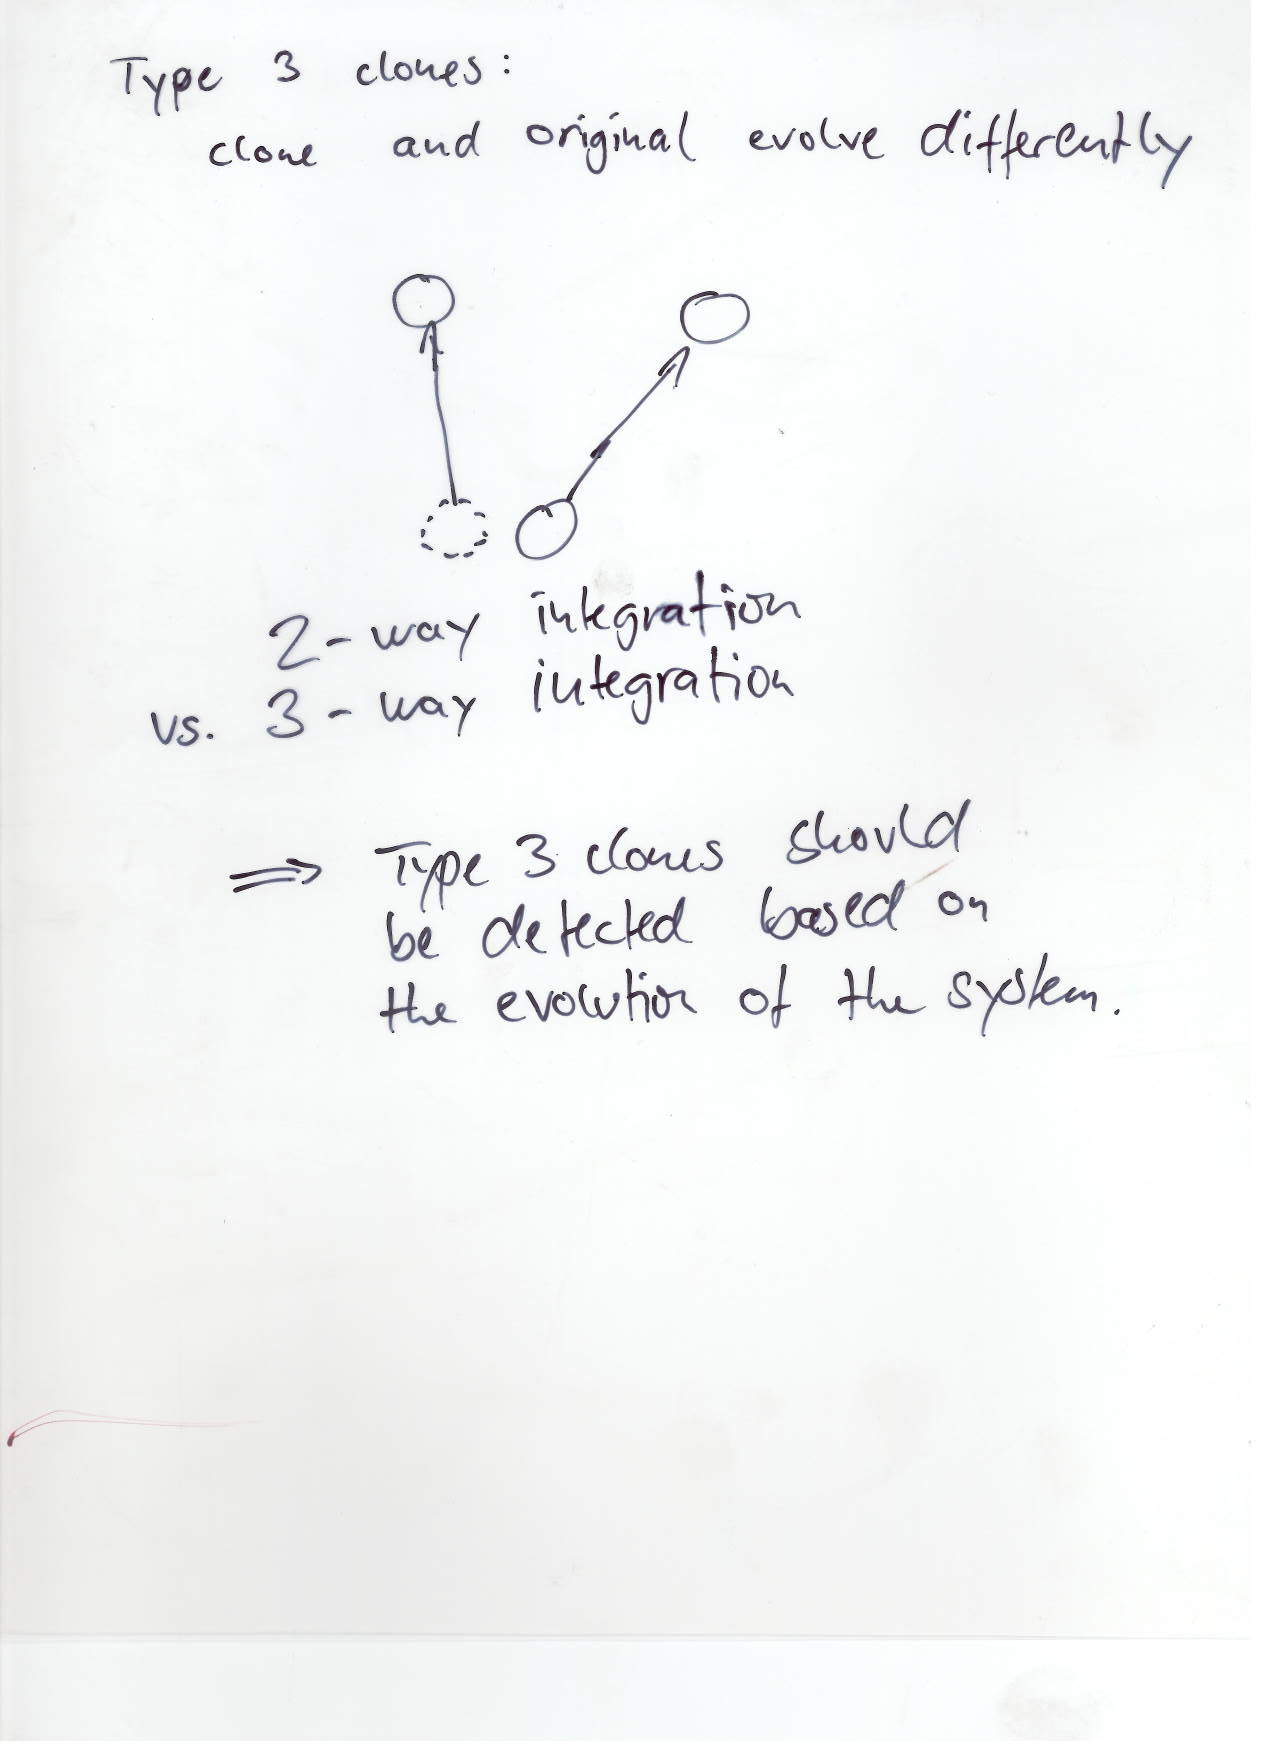 Type 3 clones:
clone and original evolve differently
2-way integration
vs. 3-way integration
⇒ Type 3 clones should
be detected based on
the evolution of the system.